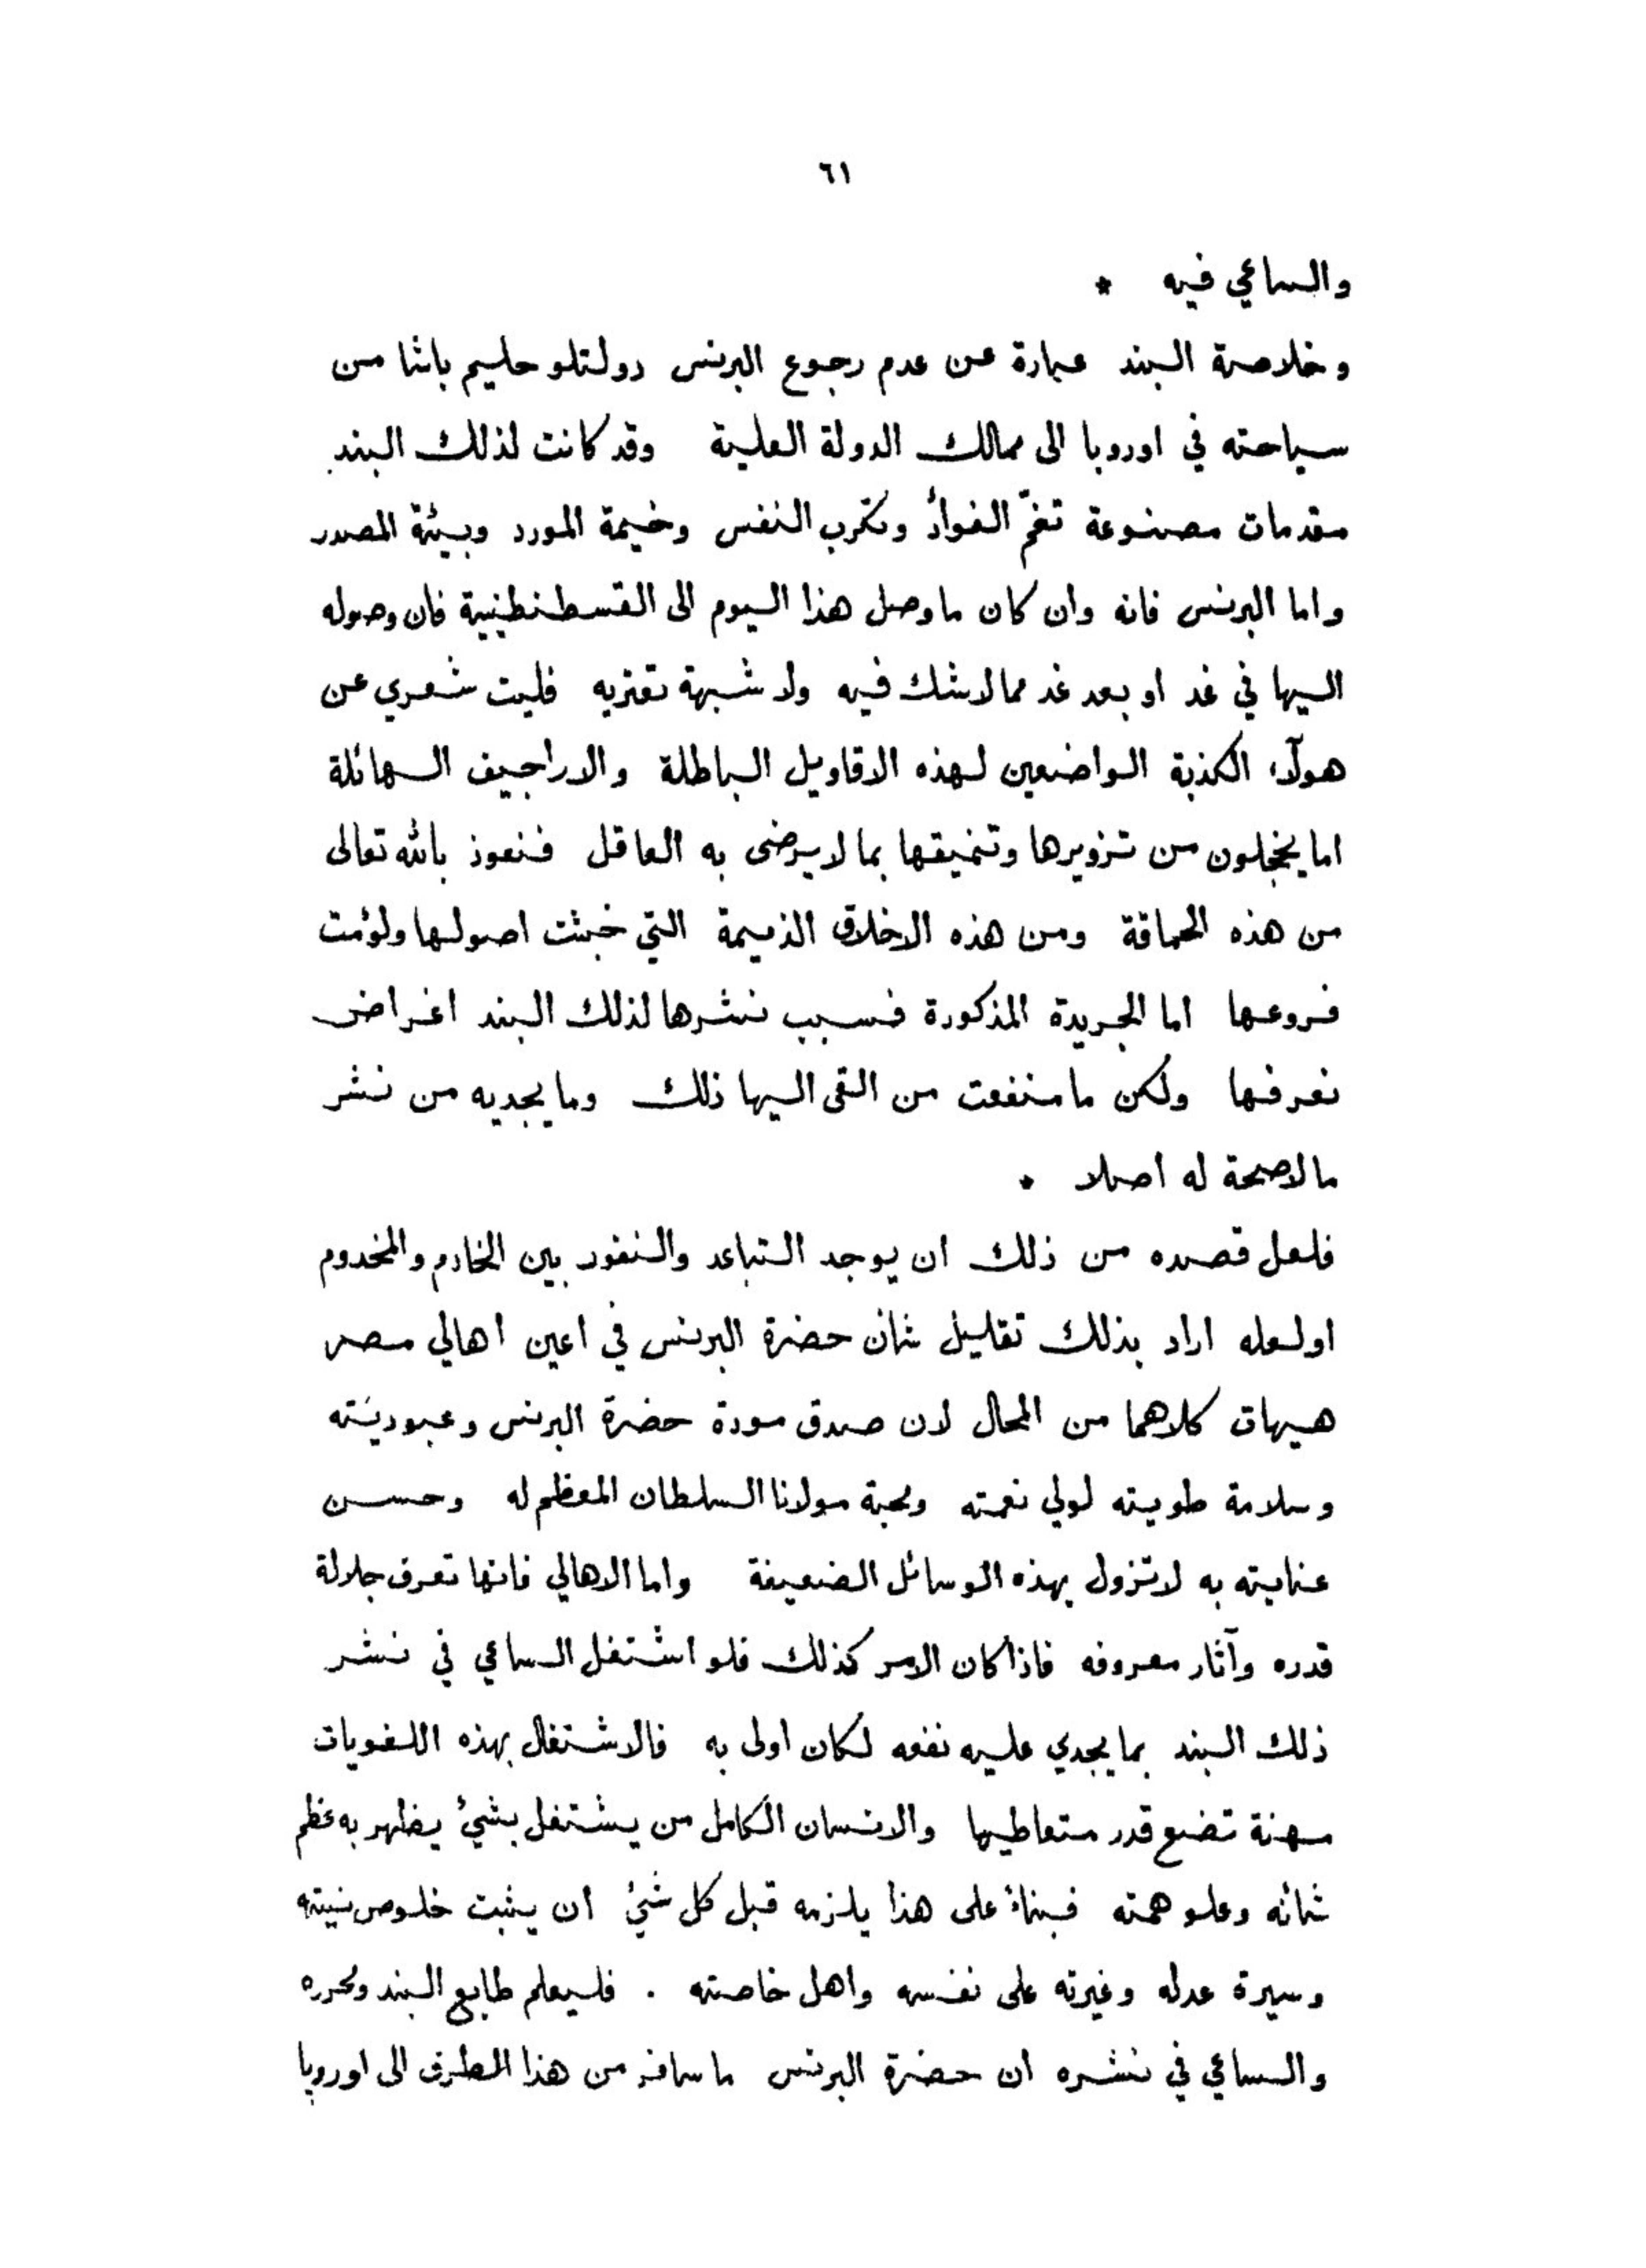 ٦١
والساعي فيه *
وخلاصة البند عبارة عن عدم رجوع البرنس دولتلو حليم باشا من
سياحته في اوروبا الى ممالك الدولة العلية وقد كانت لذلك البند
مقدمات مصنوعة تغمّ الفوأد وتكرب النفس وخيمة المورد وبيئة المصدر
واما البرنس فانه وان كان ما وصل هذا اليوم الى القسطنطينية فان وصوله
اليها في غد او بعد غد مما لا شك فيه ولا شبهة تعتريه فليت شعري عن
هولآء الكذبة الواضعين لهذه الاقاويل الباطلة والاراجيف الهائلة
اما يخجلون من تزويرها وتنميقها بما لا يرضى به العاقل فنعوذ بالله تعالى
من هذه الحماقة ومن هذه الاخلاق الذميمة التي خبثت اصولها ولؤمت
فروعها اما الجريدة المذكورة فسبب نشرها لذلك البند اغراض
نعرفها ولكن ما منفعت من القى اليها ذلك وما يجديه من نشر
ما لا صحة له اصلا *
فلعل قصده من ذلك ان يوجد التباعد والنفور بين الخادم والمخدوم
او لعله اراد بذلك تقليل شأن حضرة البرنس في اعين اهالي مصر
هيهات كلاهما من المحال لان صدق مودة حضرة البرنس وعبوديته
وسلامة طويته لولي نعمته ومحبة مولانا السلطان المعظم له وحسن
عنايته به لا تزول بهذه الوسائل الضعيفة واما الاهالي فانها تعرف جلالة
قدره وآثار معروفه فاذا كان الامر كذلك فلو اشتغل الساعي في نشر
ذلك البند بما يجدي عليه نفعه لكان اولى به فالاشتغال بهذه اللغويات
مهنة تضع قدر متعاطيها والانسان الكامل من يشتغل بشيئ يظهر به عظم
شأنه وعلو همته فبناءً على هذا يلزمه قبل كل شيئ ان يثبت خلوص نيته
وسيرة عدله وغيرته على نفسه واهل خاصته . فليعلم طابع البند ومحرره
والساعي في نشره ان حضرة البرنس ما سافر من هذا الطرف الى اوروبا